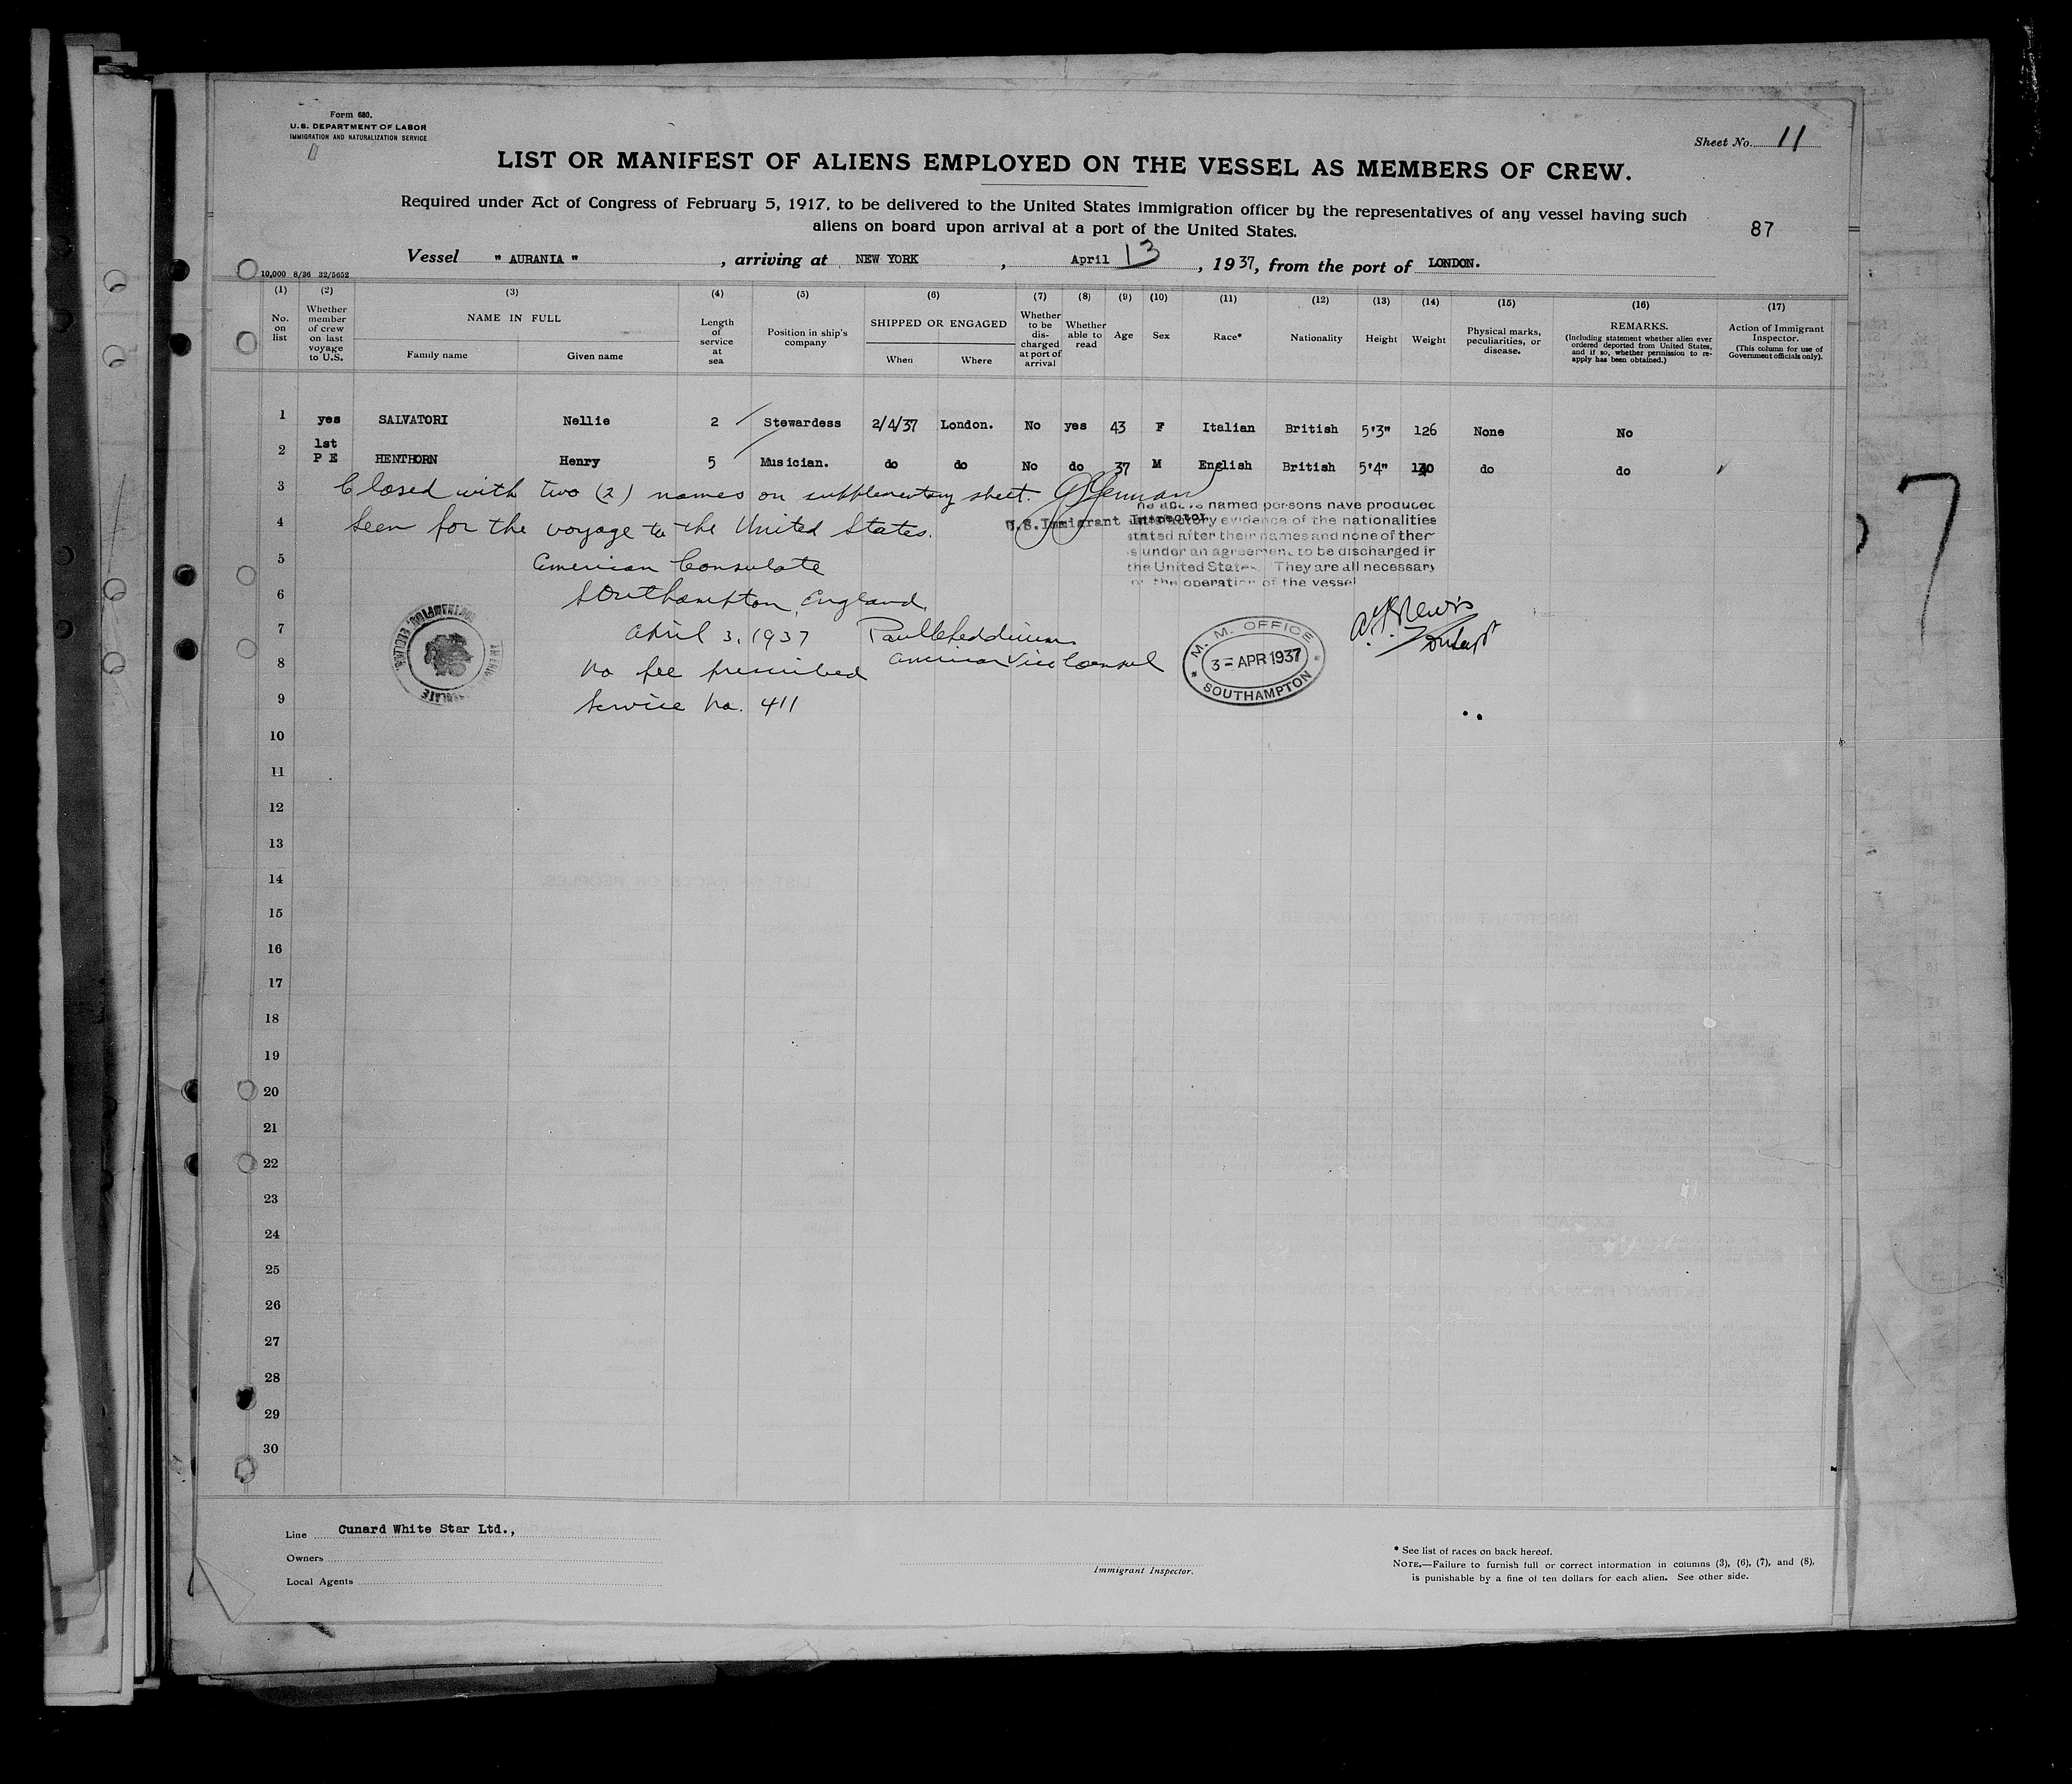 Form 680.
U.S. DEPARTMENT OF LABOR
IMMIGRATION AND NATURALIZATION SERVICE
Sheet No. 11
LIST OR MANIFEST OF ALIENS EMPLOYED ON THE VESSEL AS MEMBERS OF CREW.
Required under Act of Congress of February 5, 1917, to be delivered to the United States immigration officer by the representatives of any vessel having such
aliens on board upon arrival at a port of the United States.
87
Vessel " AURANIA " , arriving at NEW YORK , April 13 , 1937, from the port of LONDON.
10,000 8/36 32/5652
(1) (2) (3) (4) (5) (6) (7) (8) (9) (10) (11) (12) (13) (14) (15) (16) (17)
No. on list
Whether member of crew on last voyage to U.S.
NAME IN FULL
Family name
Given name
Length of service at sea
Position in ship's company
SHIPPED OR ENGAGED
When
Where
Whether to be discharged at port of arrival
Whether able to read
Age
Sex
Race*
Nationality
Height
Weight
Physical marks, peculiarities, or disease.
REMARKS.
(Including statement whether alien ever ordered deported from United States, and if so, whether permission to reapply has been obtained.)
Action of Immigrant Inspector.
(This column for use of Government officials only).
1 yes SALVATORI Nellie 2 Stewardess 2/4/37 London. No yes 43 F Italian British 5'3" 126 None No
2 1st P E HENTHORN Henry 5 Musician. do do No do 37 M English British 5'4" do do
3 Closed with two (2) names on supplementary sheet.
4 Seen for the voyage to the United States.
U.S. Immigrant Inspector
named persons have produced
evidence of the nationalities
stated after their names and none of them
is under an agreement to be discharged in
the United States. They are all necessary
the operation of the vessel
5 American Consulate
6 Southampton, England.
7 April 3, 1937
8 No fee prescribed American Vice Consul
9 Service No. 411
M. M. OFFICE
3 = APR 1937
SOUTHAMPTON
10
11
12
13
14
15
16
17
18
19
20
21
22
23
24
25
26
27
28
29
30
Line Cunard White Star Ltd.,
Owners
Local Agents
Immigrant Inspector.
* See list of races on back hereof.
NOTE.—Failure to furnish full or correct information in columns (3), (6), (7), and (8),
is punishable by a fine of ten dollars for each alien. See other side.